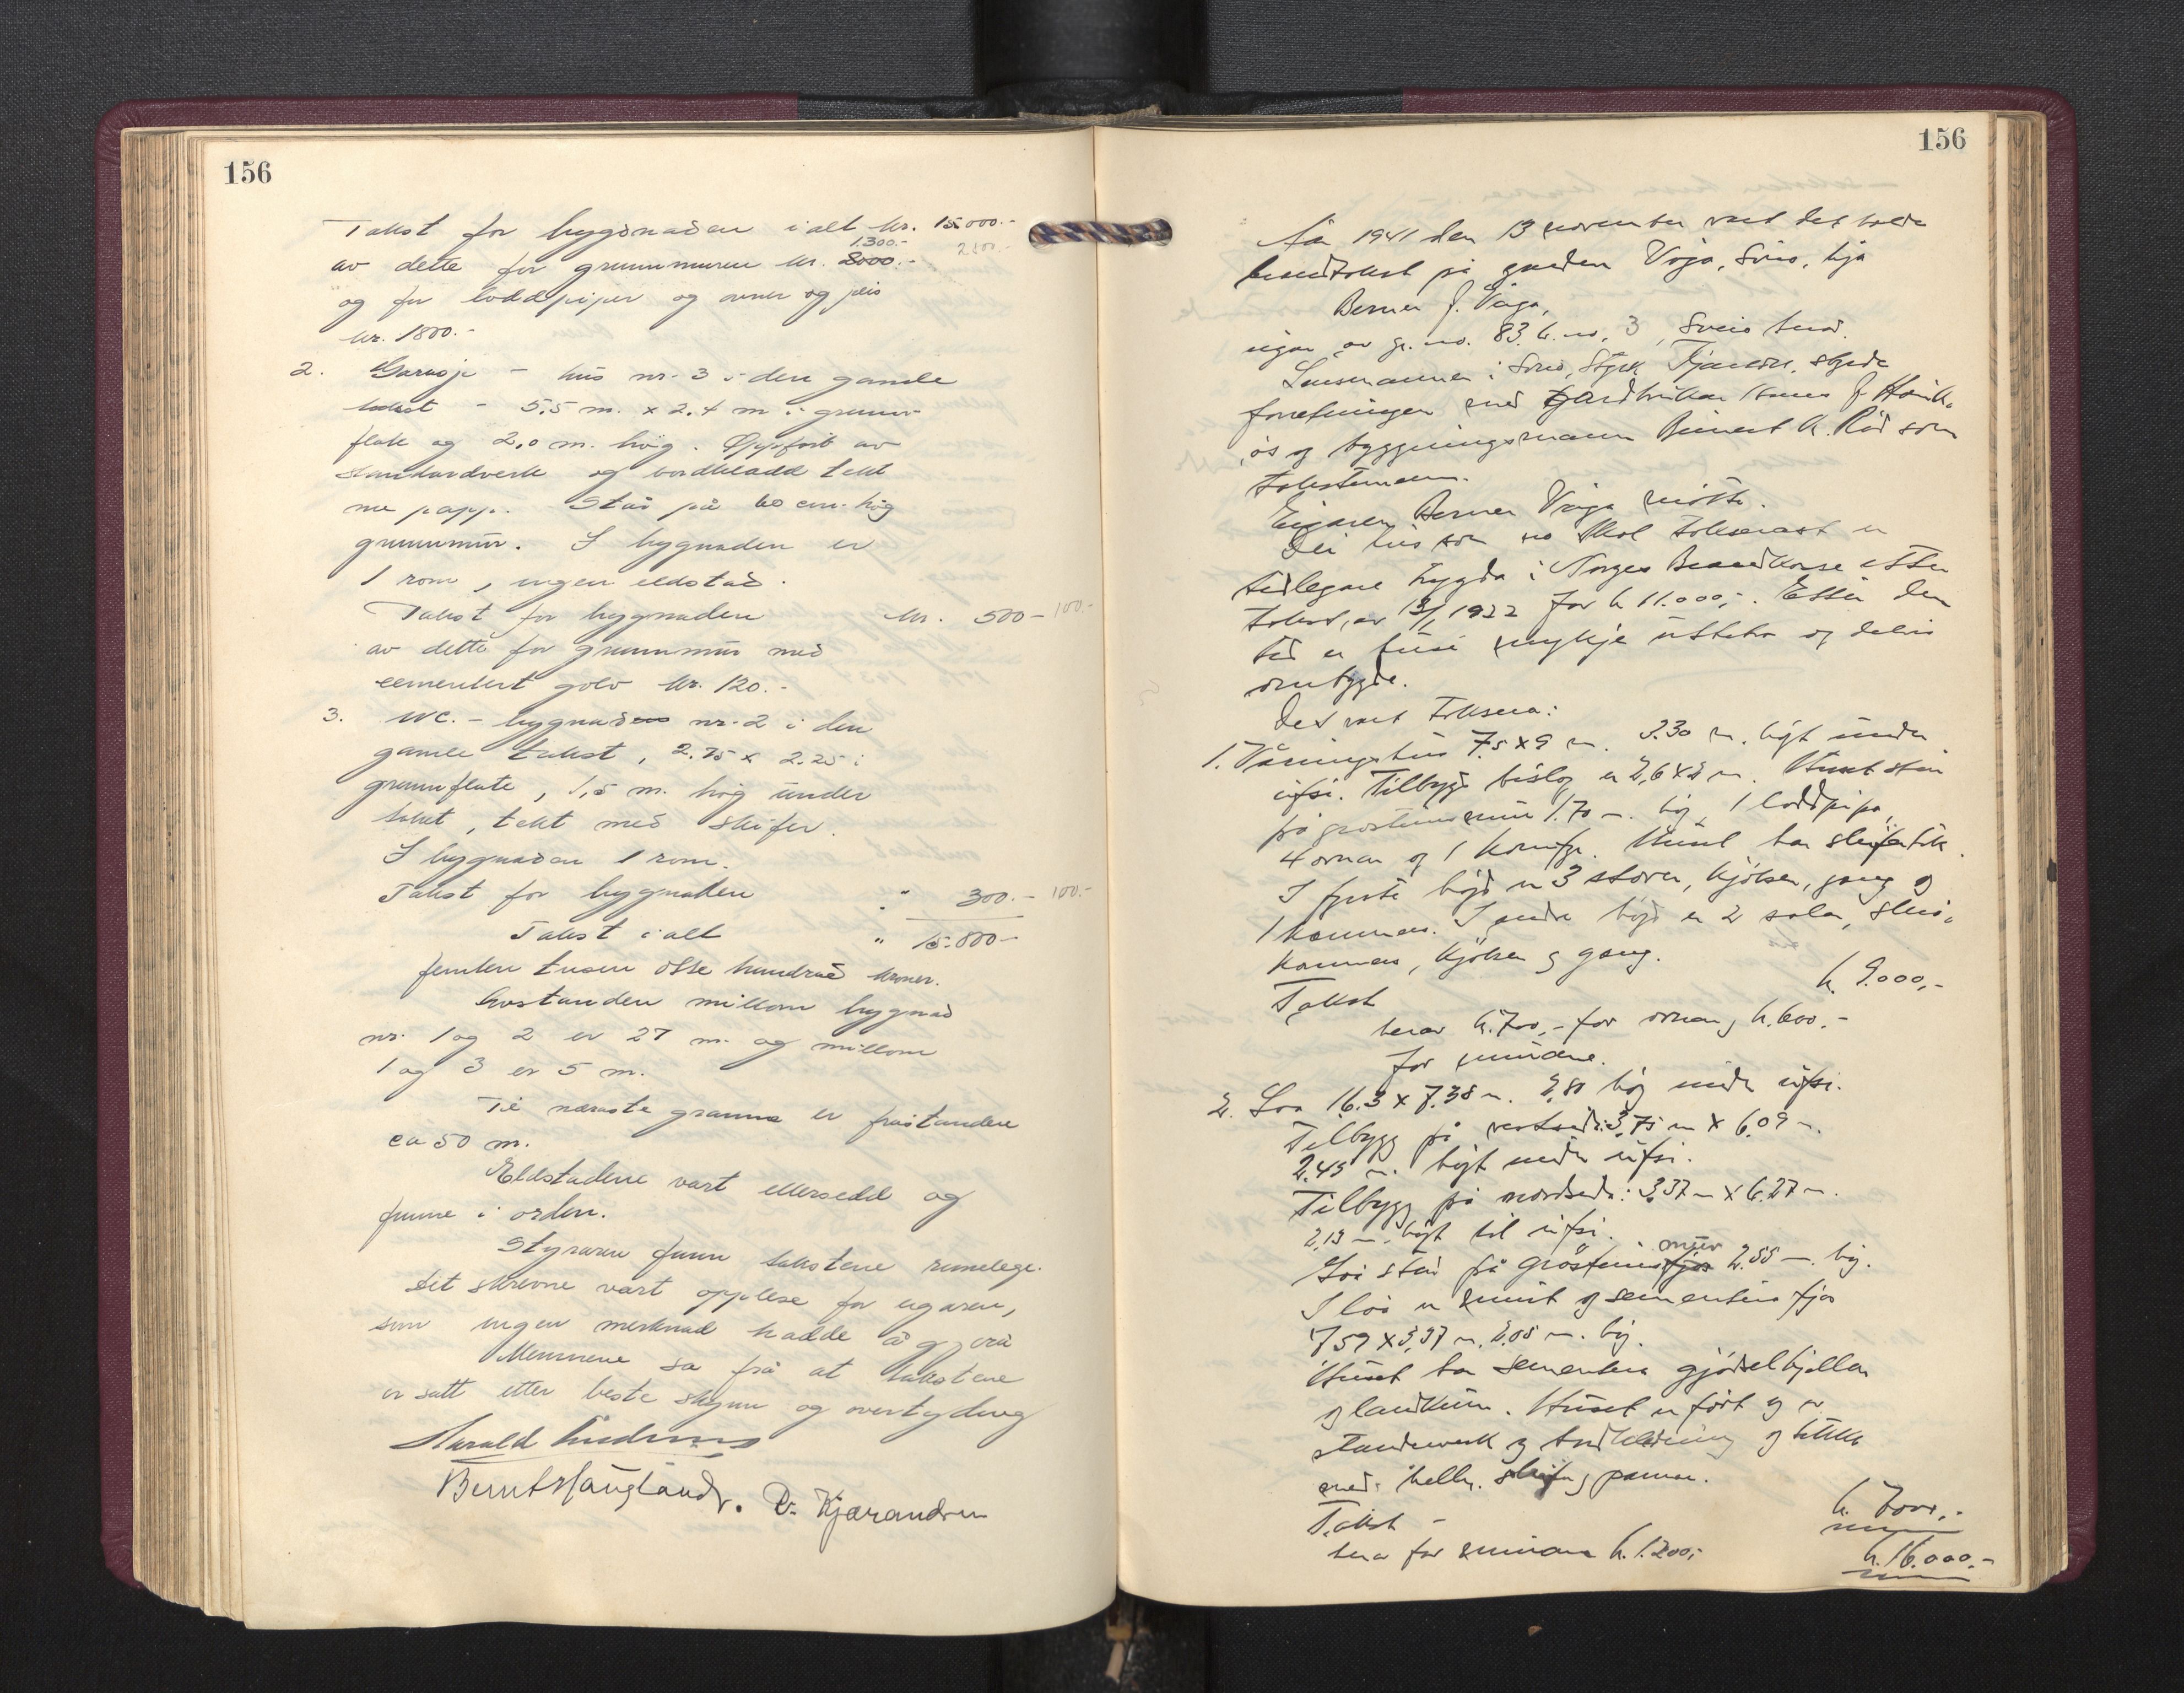 156
Takst for bygdnaden i alt kr. 15.000.-
1.300.- 2800.-
av dette for grunnmuren kr. 8000.-
og for loddpiper og ovner og peis
kr. 1800.-
2. Garasje - hus nr. 3 i den gamle
takst - 5.5 m. x 2.4 m i grunn-
flate og 2,0 m. høg. Oppført av
standardverk og bordkledd tekt
me papp. Står på 60 cm. høg
grunnmur. I bygnaden er
1 rom, ingen eldstad.
Takst for bygnaden kr. 500- 100.-
av dette for grunnmur med
cementert golv kr. 120.-
3. WC. - bygnaden nr. 2 i den
gamle takst, 2.75 x 2.25 i
grunnflate, 1,5 m. høg under
taket, tekt med skifer.
I bygnaden 1 rom.
Takst for bygnaden " 300.- 100.-
Takst i alt " 15.800-
femten tusen åtte hundrad kroner.
Avstanden millom bygnad
nr. 1 og 2 er 27 m. og millom
1 og 3 er 5 m.
Til næraste granne er fråstanden
ca 50 m.
Eldstadene vart ettersedd og
funne i orden.
Styraren fann takstene rimelege.
Det skrevne vart opplese for eigaren,
som ingen merknad hadde å gjera
Mennene sa frå at takstene
er satt etter beste skjønn og overtyding
Harald
Bernt Haugland. D. Kjærandsen
156
År 1941 den 13 november vart det halde
brandtakst på garden Våga, Sveio, hjå
Berner J. Våga,
eigar av gr. no. 83. b. no. 3, Sveio herad.
Lensmannen i Sveio, styrde
forretningen med gardbrukar J.
ås og byggningsmann K. Rød som
takstmenn.
Eigaren Berner Våga møtte.
Dei hus som no skal takserast er
tidlegare trygda i Norges Brandkasse etter
takst av 13/1 1922 for k 11.000,-. Etter den
tid er husi mykje utbetra og delvis
ombygde.
Det vart taksera:
1. Våningshus 7.5 x 9 m. 3.30 m. høgt under
ufsi. Tilbygd bislog er 2,6 x 2 m. Huset står
på gråsteinsmur 1.70 m. høg, 1 loddpipa,
4 omnar og 1 komfyr. Huset har skifertak.
I fyrste høgd er 3 stover, kjøken, gang og
1 kammers. I andre høgd er 2 salar, 
kammers, kjøken og gang.
Takst k. 9.000,-
herav k. 700,- for omnar, k. 600.-
for murane.
2. Loa 16.3 x 7.38 m. 2,80 høg under ufsi.
Tilbygg på vestsida: 3,75 m x 6.09 m.
2.45 m. høgt under ufsi.
Tilbygg på nordsida: 3,37 m x 6.27 m.
2,13 m. høgt til ufsi.
Loa står på gråsteinsmur 2.55 m. høg.
I loa er murt og sementera fjøs
7.59 x 3,97 m. 2.05 m. høg.
Huset har sementera gjødselkjellar
og landkum. Huset er ført og av
standerverk og bordkledning og tekkt
med heller, skifer og pannar.
Takst - k. 7000,-
herav for murane k. 1.200,-
k. 16.000.-